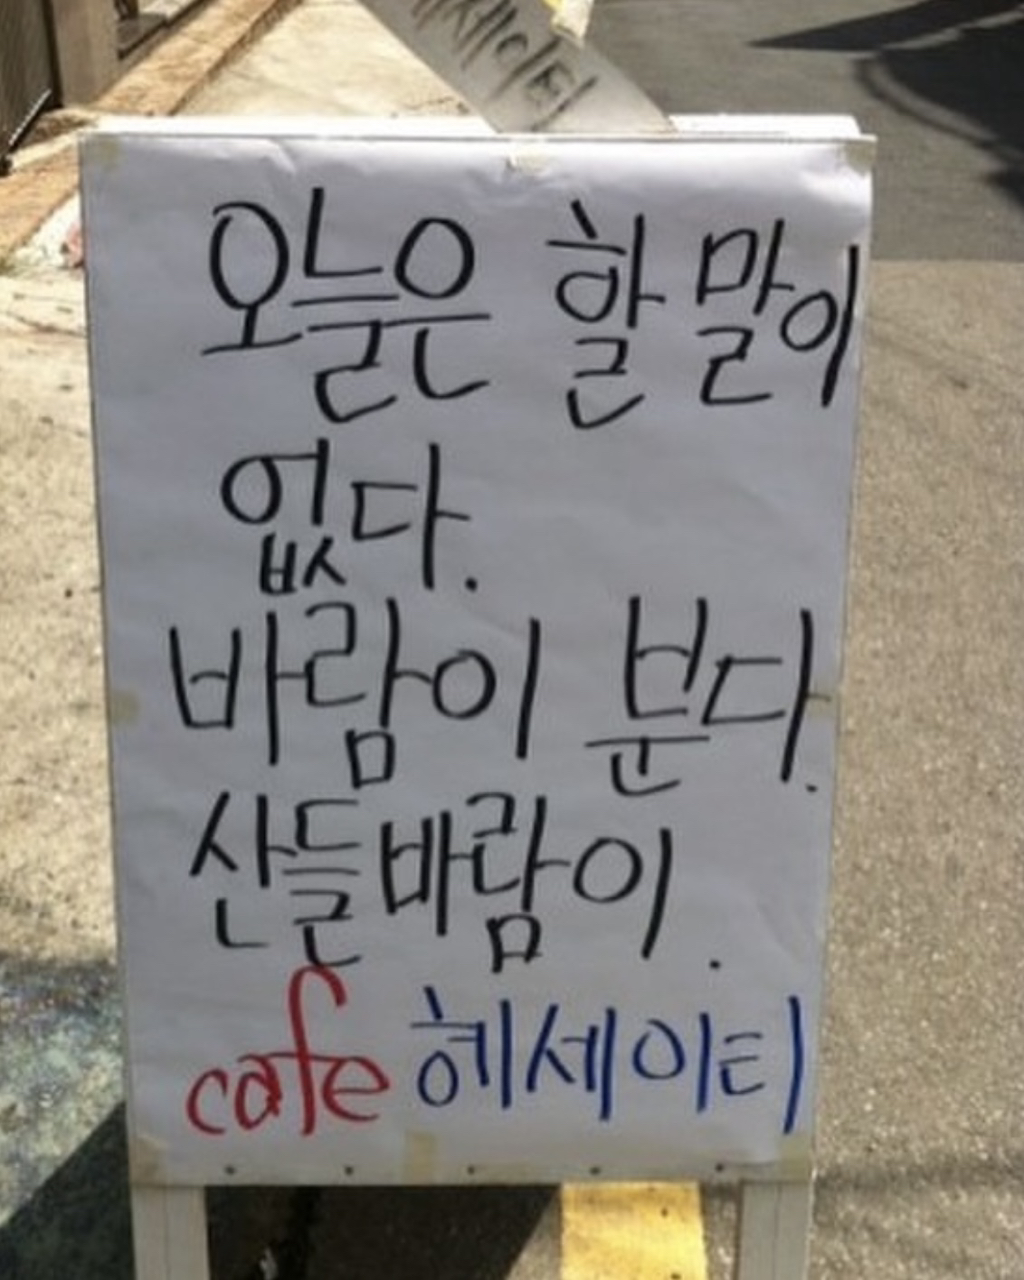 오늘은 할 말이
없다.
바람이 분다.
산들바람이.
cafe 헤세이티